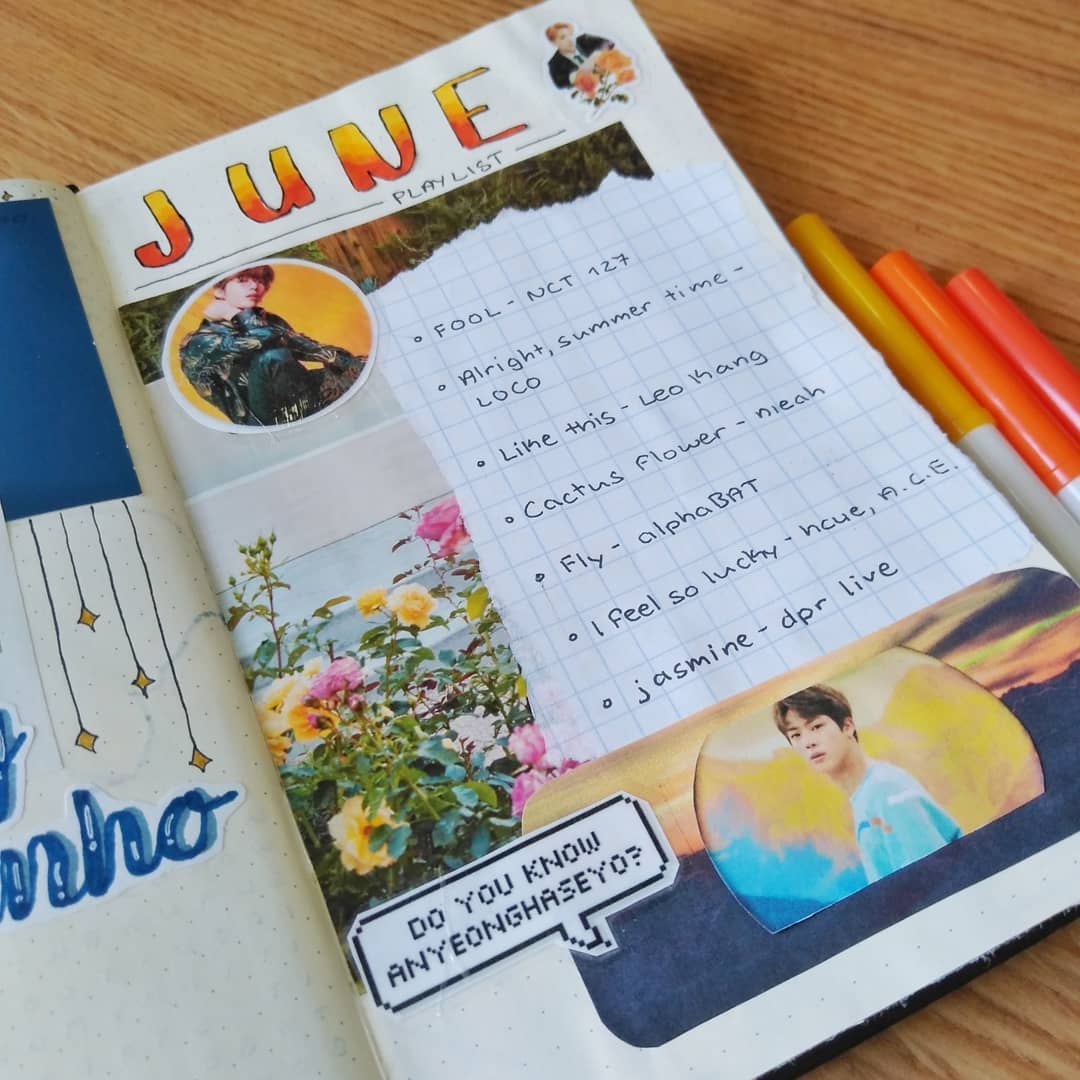 JUNE
PLAYLIST
• FOOL - NCT 127
• Alright, summer time -
LOCO
• Like this - Leo Kang
• Cactus flower - nieah
• Fly - alphaBAT
• I feel so lucky - hcue, A.C.E.
• jasmine - dpr live
DO YOU KNOW
ANYEONGHASEYO?